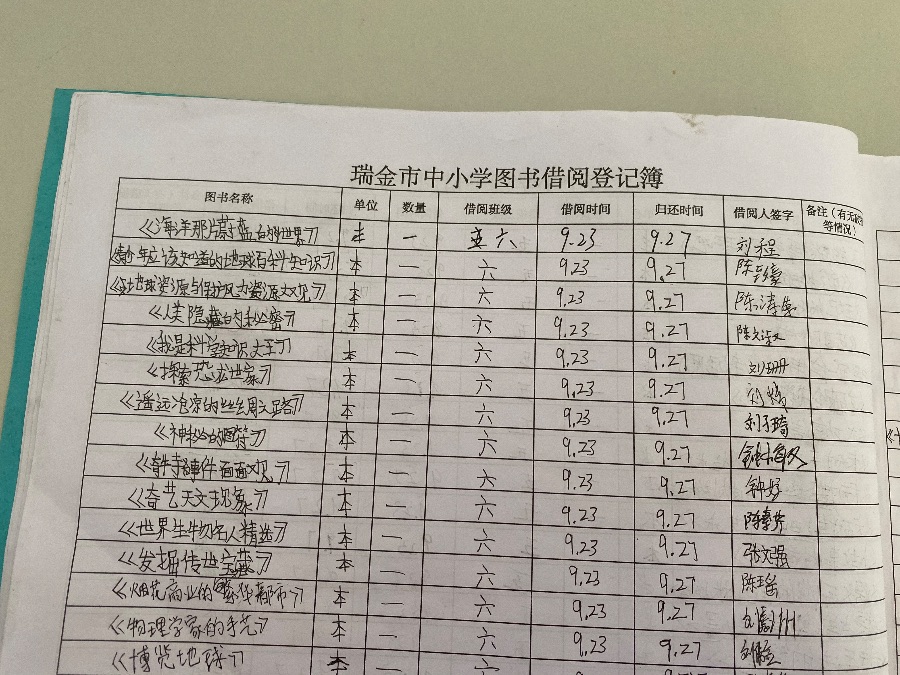 瑞金市中小学图书借阅登记簿
图书名称 单位 数量 借阅班级 借阅时间 归还时间 借阅人签字 备注（有无破 等情况）
《海洋那片蔚蓝的世界》 本 一 六 9.23 9.27 刘程
应该知道的地球百科知识》 本 一 六 9.23 9.27 陈
地球资源与保护 资源 观》 本 一 六 9.23 9.27 陈
《人类隐藏的秘密》 本 一 六 9.23 9.27 陈
《我是科学知识大王》 本 一 六 9.23 9.27 刘珊
《探索恐龙世家》 本 一 六 9.23 9.27
《遥远沧凉的丝绸之路》 本 一 六 9.23 9.27 刘子琦
《神秘的图符》 本 一 六 9.23 9.27
事件面面观》 本 一 六 9.23 9.27 钟好
《奇艺天文现象》 本 一 六 9.23 9.27 陈
《世界生物名人精选》 本 一 六 9.23 9.27 张文强
《发掘传世宝藏》 本 一 六 9.23 9.27 陈瑶
《烟花商业的 都市》 本 一 六 9.23 9.27
《物理学家的手艺》 本 一 六 9.23 9.27 刘
《博览地球》 本 一 9.23 9.27